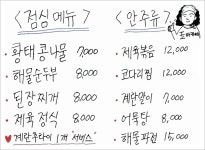 <점심 메뉴>
• 황태 콩나물 7,000
• 해물 순두부 8,000
• 된장찌개 8,000
• 제육 정식 8,000
♥ 계란후라이 1개 "서비스"
<안주류>
• 제육볶음 12,000
• 코다리찜 12,000
• 계란말이 7,000
• 어묵탕 8,000
• 해물파전 15,000